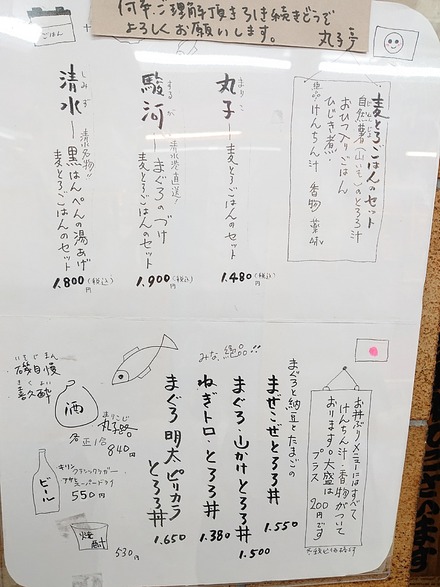 何卒ご理解頂き引き続きどうぞ
よろしくお願いします。 丸子亭
ごはん
+
麦とろごはんのセット
自然薯(山いも)のとろろ汁
おひつ入りごはん
ひじき煮
けんちん汁 香物 薬味
まりこ
丸子 ― 麦とろごはんのセット
1.480(税込)円
するが
駿河 ― まぐろのづけ
清水港直送!
麦とろごはんのセット
1.900(税込)円
しみず
清水 ― 黒はんぺんの湯あげ
清水名物!!
麦とろごはんのセット
1.800(税込)円
お丼ぶりメニューにはすべて
けんちん汁・香物がついて
おります。大盛は
プラス200円です
みな、絶品!!
まぐろと納豆とたまごの
まぜこぜとろろ丼
1.550
まぐろ・山かけとろろ丼
1.500
ねぎトロ・とろろ丼
1.380
まぐろ 明太ピリカラ
とろろ丼
1.650
いそじまん
磯自慢
きくよい
喜久酔
酒
まりこじ
丸子路
各正1合
840円
ビール
キリンクラシックラガー
アサヒスーパードライ
550円
焼酎
530円